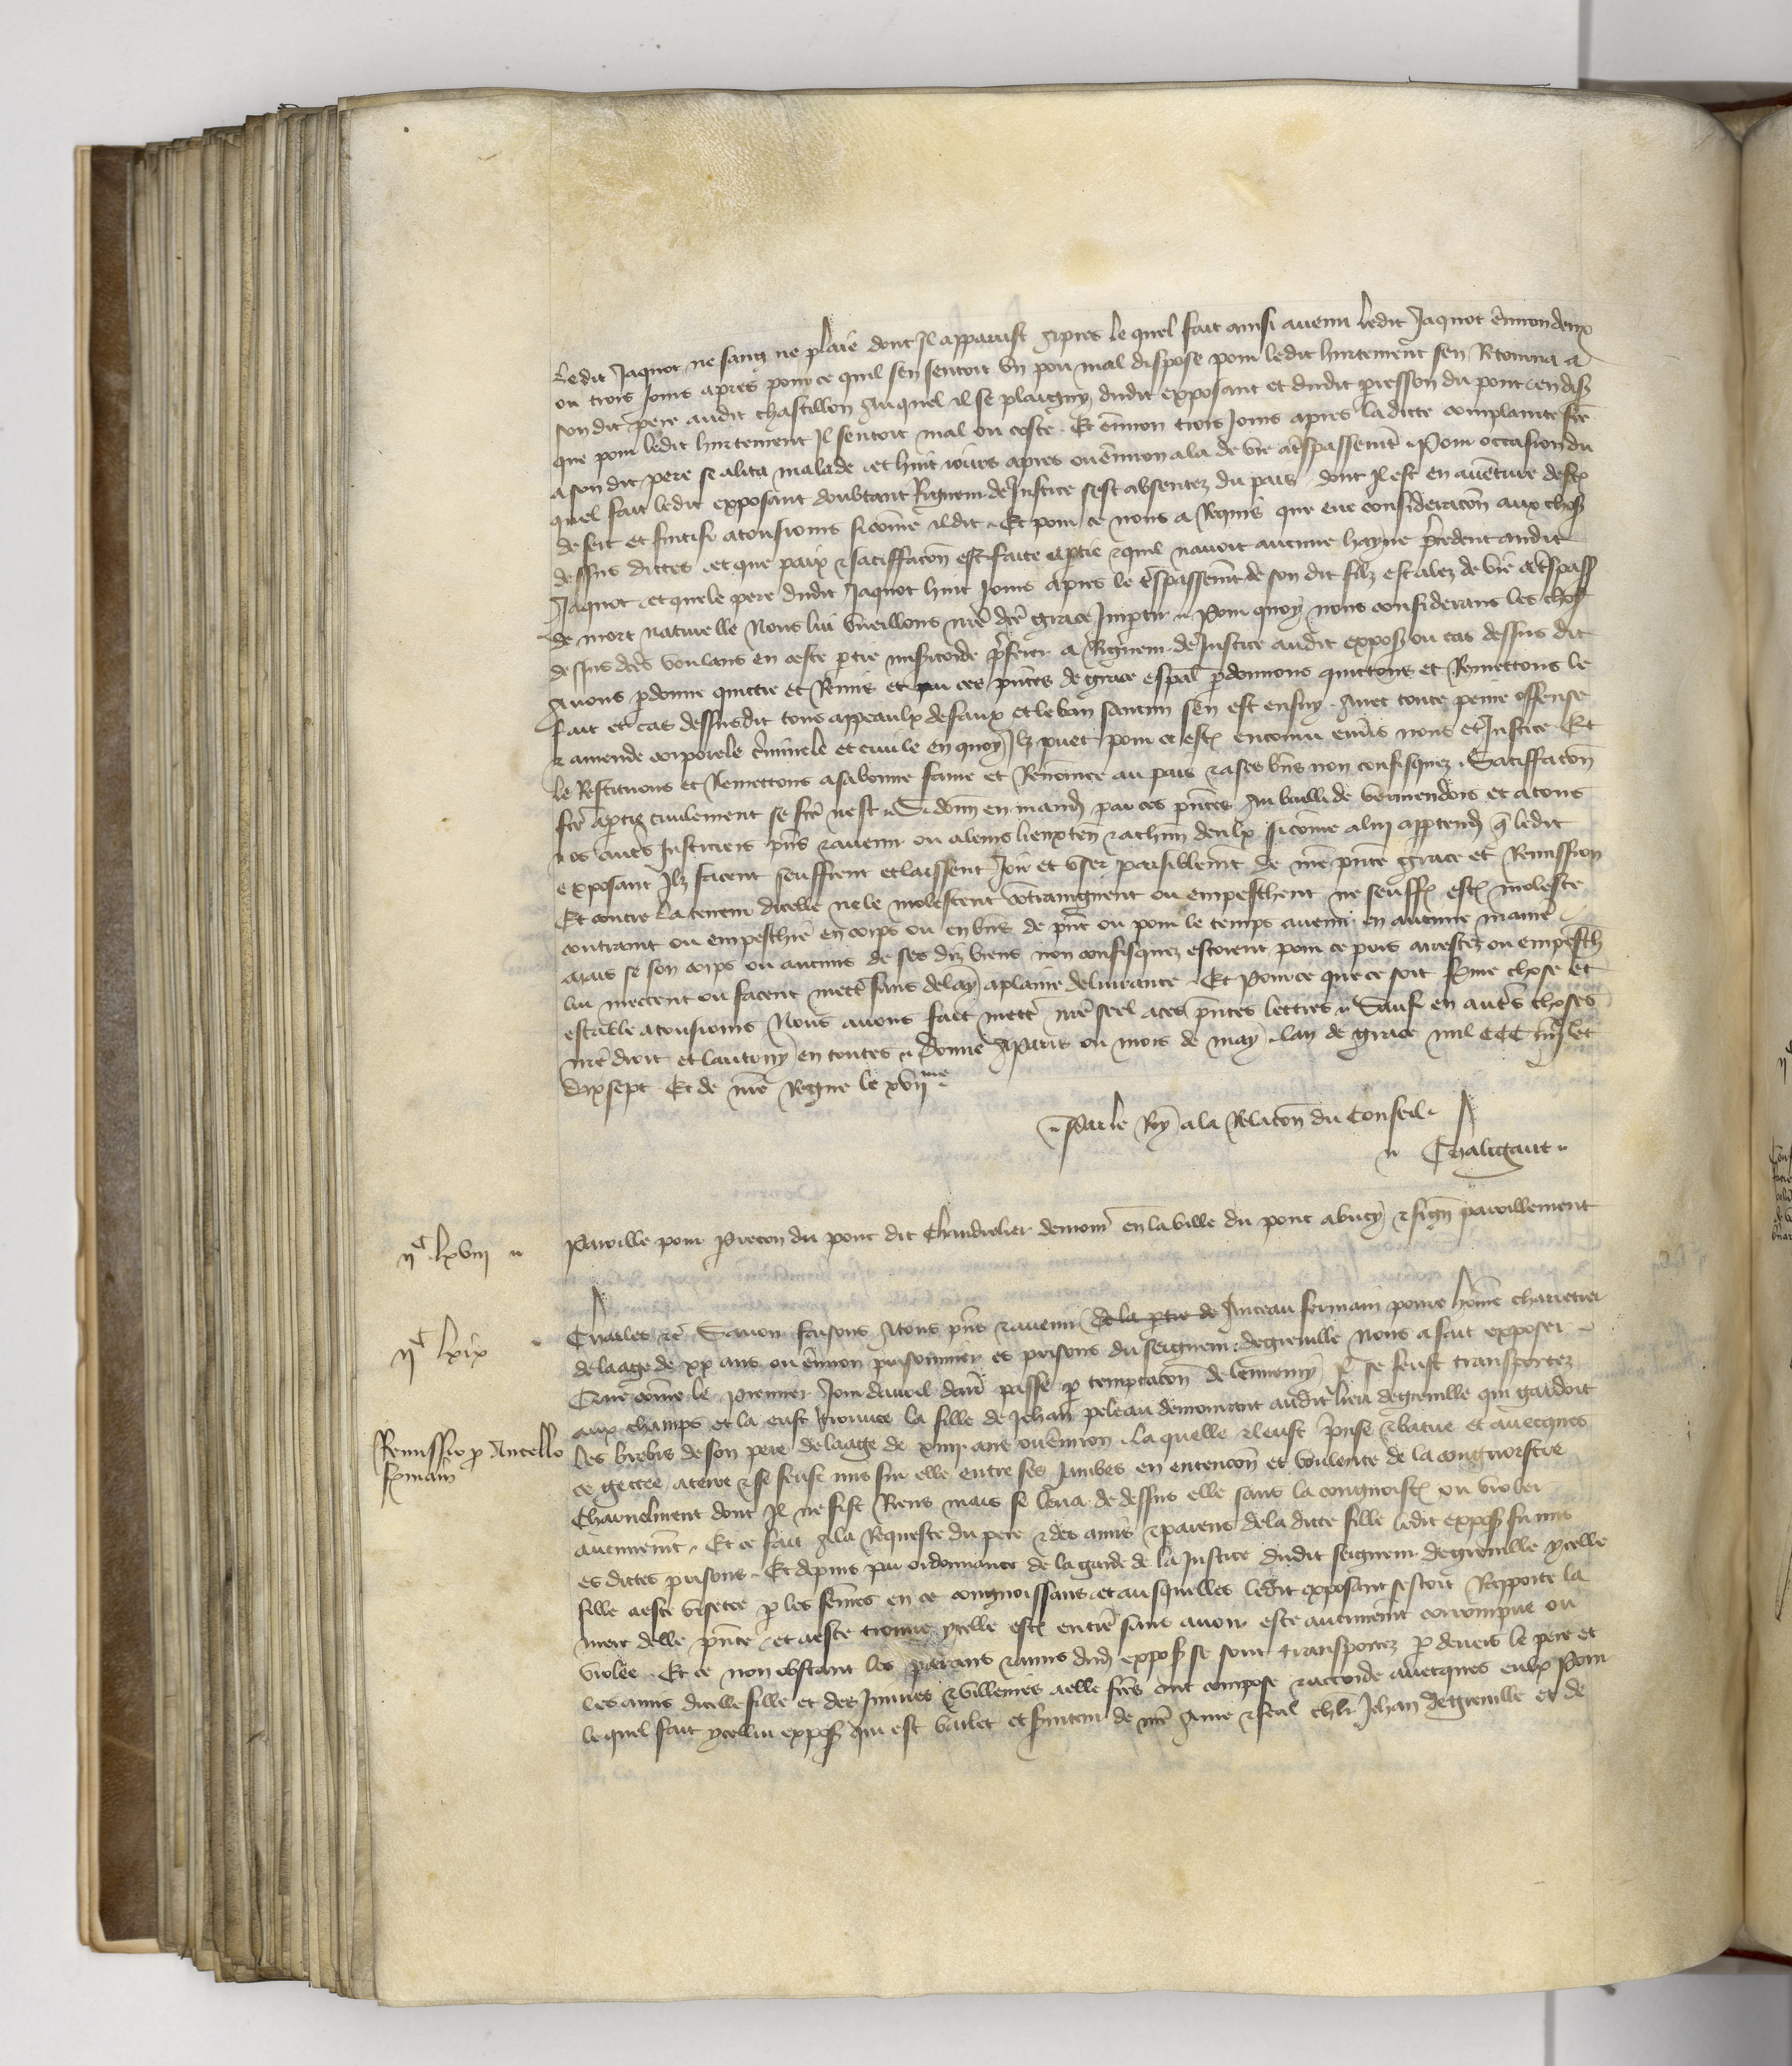 Ledit Jaquot ne sang ne plaie dont il apparust Apres le quel fait ainsi avenu ledit Jaquot environ deux
ou trois jours apres pource quil sen sentoit un pou mal dispose pour ledit hurtement sen retourna a
son dit pere audit Chastillon Auquel il se plaigny dudit exposant et dudit presson du pont en dis
que pour ledit hurtement il sentoit mal ou coste. Et environ trois jours apres ladicte complainte fce
a son dit pere se alita malade et huit jours apres ou environ ala de vie a trespassement Pour occasion du
quel fait ledit exposant doubtant rigueur de Justice sest absentez du pais dont il est en aventure destre
desert et fuitif a tousjours si come il dit Et pour ce nous a requis que eue consideracon aux choses
dessus dictes et que paix & satiffacon est faite a ptie & quil navoit aucune hayne precedent audit
Jaquot et que le pere dudit Jaquot huit jours apres le trespassement de son dit filz est alez de vie a trespass
de mort naturelle Nous lui vueillons nre dce grace impartir Pour quoy nous considerans les choses
dessus dces voulans en ceste ptie misericorde preferer a rigueur de Justice audit expos ou cas dessus dit
Avons pdonne quictie et remis et par ces pntes de grace espal pdonnons quictons et remettons le
fait et cas dessusdit tous appeaulx defaux et le ban saucun sen est ensuy Avec toute peine offense
& amende corporele criminele et civile en quoy il puet pour ce estre encouru envers nous et Justice Et
le restituons et remettons a sa bonne fame et renomee au pais & a ses bns non confisquez Satiffacon
fce a ptie civilement se fce nest Si donn en mand par ces pntes Au bailli de Vermendois et a tous
nos autres Justiciers pns & avenir ou a leurs lieuxten & a chun deulx si come a lui apptend q ledit
exposant ilz facent seuffrent et laissent joir et user paisiblement de nre pnte grace et remission
Et contre la teneur dicelle ne le molestent contraingnent ou empeschent ne seuffrent estre moleste
contraint ou empeschie en corps ou en bns de pnt ou pour le temps avenir en aucune maniere
mais se son corps ou aucuns de ses diz biens non confisquez estoient pour ce pris arrestez ou empesch
lui mectent ou facent mettre sans delay a plaine delivrance Et pource que ce soit ferme chose et
estable a tousjours Nous avons fait mettre nre seel a ces pntes lettres Sauf en autres choses
nre droit et lautruy en toutes Donne A Paris ou mois de may lan de grace mil CCC iiijxx et
dixsept Et de nre regne le xvijme
Par le Roy a la relacon du Conseil
Chaligaut
ijC lxviij
Pareille pour Pieton du pont dit Chandrelier demour en la ville du pont a bucy & sign pareillement
ijC lxix
Charles &c Savoir faisons A tous pns & avenir de la ptie de Anceau fermain povre home charretier
de laage de xx ans ou environ prisonnier es prisons du seigneur de greville Nous a fait exposer
Que come le premier jour davril darr passe p temptacon de lennemy Il se feust transportez
aux champs et la eust trouvee la fille de Jehan peleau demourant audit lieu de greville qui gardoit
Remissio p Ancello
fermain
les brebis de son pere de laage de xiiij ans ou environ la quelle il eust prise & batue et avecques
ce gettee a terre & se feust mis sur elle entre ses jambes en entencon et voulente de la congnoistre
charnelment dont il ne fist riens mais se leva de dessus elle sans la congnoistre ou violer
aucunement Et ce fait A la requeste du pere & des amis & parens de la dicte fille ledit expos fu mis
es dictes prisons Et depuis par ordonnance de la garde de la Justice dudit seigneur de greville ycelle
fille a este visetee p les femes en ce congnoissans et ausquelles ledit exposant sestoit rapporte la
mere delle pnte et a este trouve ycelle estre entiere sans avoir este aucunement corrompue ou
violee Et ce non obstant les parens & amis dud expos se sont transportez p devers le pere et
les amis dicelle fille et des injures & villenies a elle fces ont compose & accorde avecques eulx Pour
le quel fait ycellui expos qui est varlet et serviteur de nre ame & feal chlr Jehan de greville et de